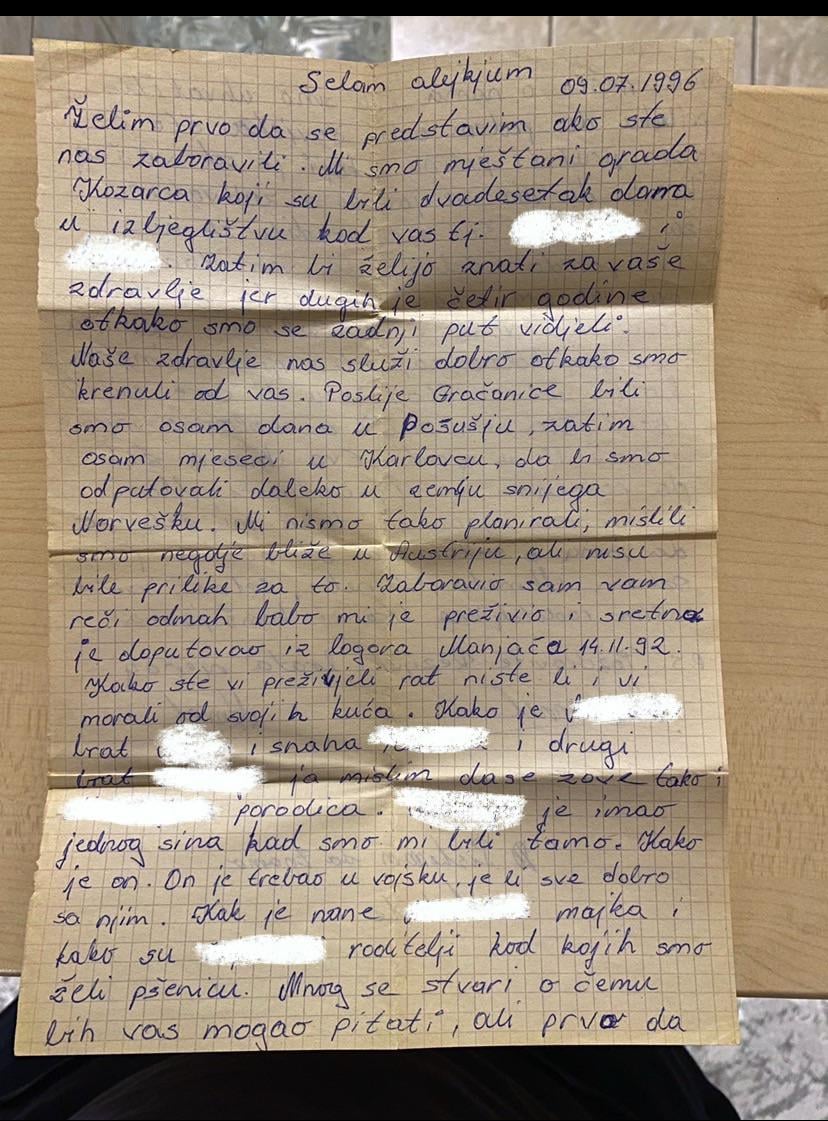 Selam alejkjum 09.07.1996
Želim prvo da se predstavim ako ste
nas zaboravili. Mi smo mještani grada
Kozarca koji su bili dvadesetak dama
u izbjeglištvu kod vas tj. i
. Zatim bi želijo znati za vaše
zdravlje jer dugih je četir godine
otkako smo se zadnji put vidjeli.
Naše zdravlje nas služi dobro otkako smo
krenuli od vas. Poslije Gračanice bili
smo osam dana u Posušju, zatim
osam mjeseci u Karlovcu, da bi smo
odputovali daleko u zemlju snijega
Norvešku. Mi nismo tako planirali, mislili
smo negdje bliže u Austriju, ali nisu
bile prilike za to. Zaboravio sam vam
reči odmah babo mi je preživio i sretno
je doputovao iz logora Manjača 14.11.92.
Kako ste vi preživjeli rat niste li i vi
morali od svojih kuća. Kako je
brat i snaha i drugi
brat ja mislim dase zove tako i
porodica. je imao
jednog sina kad smo mi bili tamo. Kako
je on. On je trebao u vojsku, je li sve dobro
sa njim. Kak je nane majka i
kako su roditelji kod kojih smo
želi pšenicu. Mnog se stvari o čemu
bih vas mogao pitati, ali prvo da